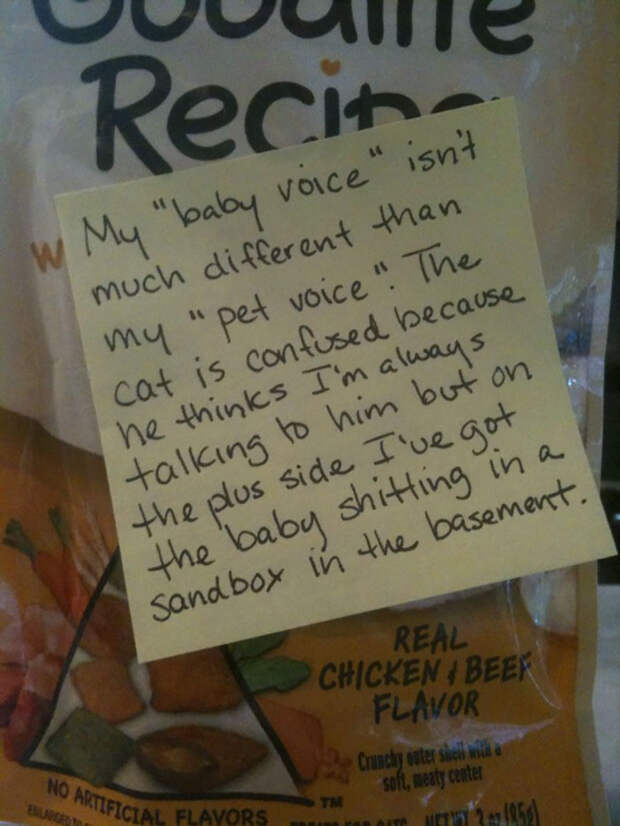 Goodlife
Recipe
My "baby voice" isn't
much different than
my "pet voice". The
cat is confused because
he thinks I'm always
talking to him but on
the plus side I've got
the baby shitting in a
sandbox in the basement.
REAL
CHICKEN & BEEF
FLAVOR
Crunchy outer shell with a
soft, meaty center
NO ARTIFICIAL FLAVORS
TM
ENLARGED TO
TREATS FOR CATS NET WT 3 oz (85g)